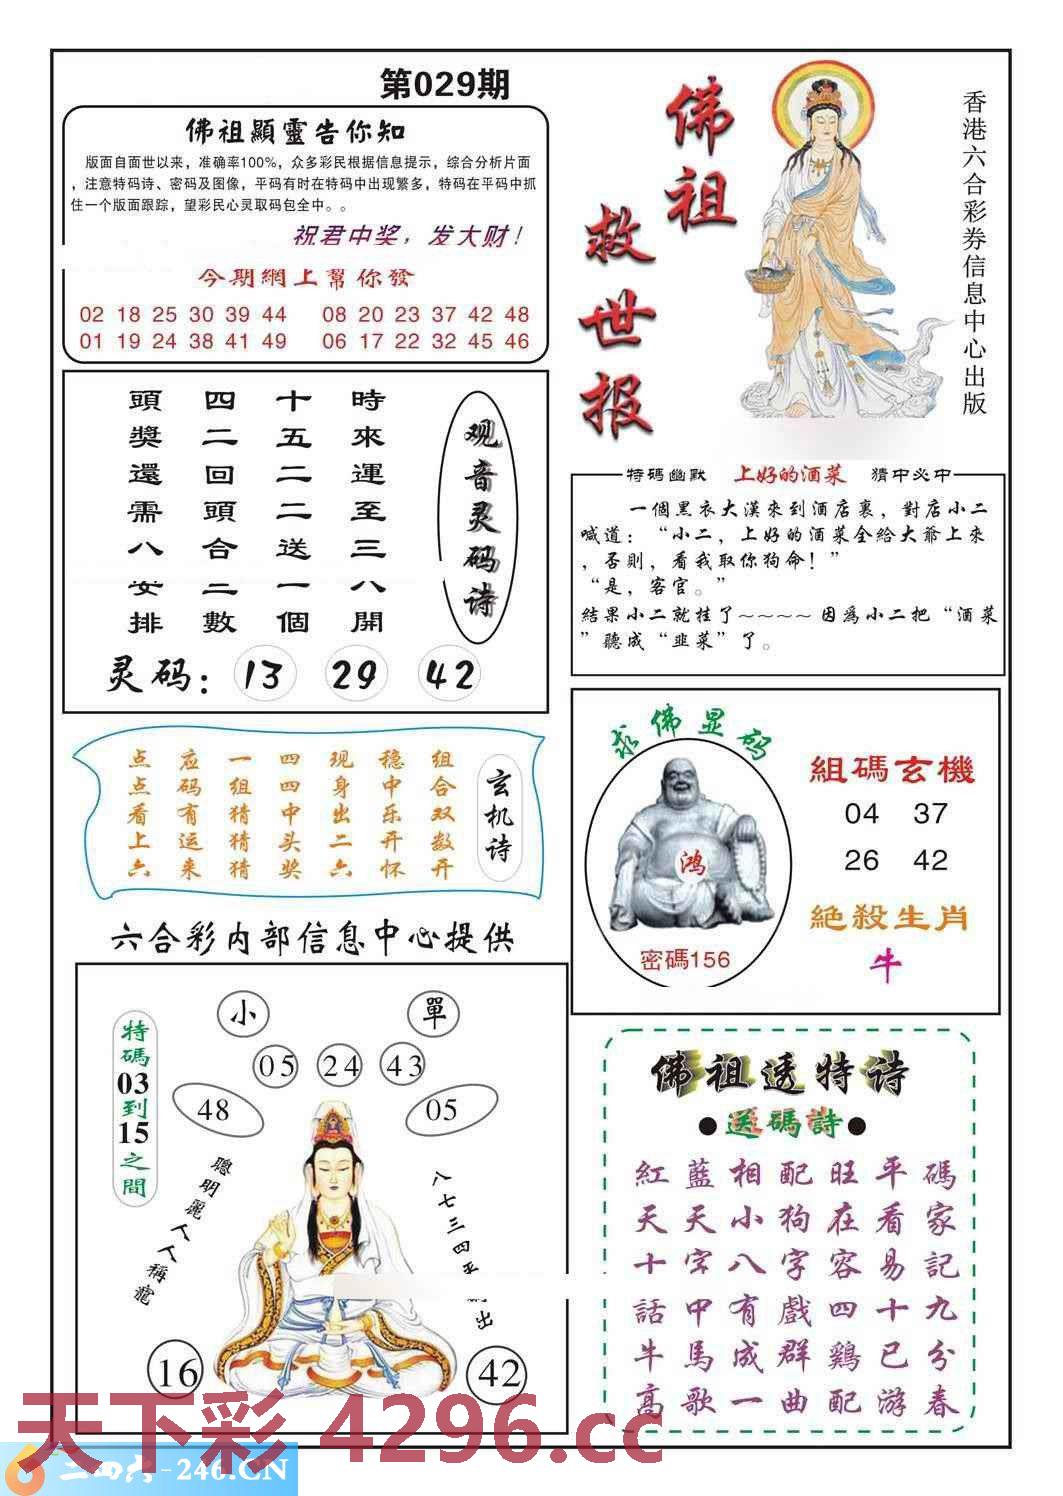 第029期
佛祖顯靈告你知
版面自面世以来，准确率100%，众多彩民根据信息提示，综合分析片面
，注意特码诗、密码及图像，平码有时在特码中出现繁多，特码在平码中抓
住一个版面跟踪，望彩民心灵取码包全中。。
祝君中奖，发大财！
今期網上幫你發
02 18 25 30 39 44 08 20 23 37 42 48
01 19 24 38 41 49 06 17 22 32 45 46
佛祖
救世报
香港六合彩券信息中心出版
观音灵码诗
時來運至三八開
十五二二送一個
四二回頭合二數
頭獎還需八安排
灵码：13 29 42
特碼幽默 上好的酒菜 猜中必中
一個黑衣大漢來到酒店裏，對店小二
喊道：“小二，上好的酒菜全給大爺上來
，否則，看我取你狗命！”
“是，客官。”
結果小二就挂了~~~~因爲小二把“酒菜
”聽成“韭菜”了。
玄机诗
组合双数开
稳中乐开怀
现身出二六
四四中头奖
一组猜猜猜
应码有运来
点点看上六
求佛显码
鸿
密碼156
組碼玄機
04 37
26 42
絕殺生肖
牛
六合彩内部信息中心提供
特碼03到15之間
小 單
05 24 43
48 05
聰明麗人人稱寵
八七三四平 出
16 42
佛祖透特诗
●送碼詩●
紅藍相配旺平碼
天天小狗在看家
十字八字容易記
話中有戲四十九
牛馬成群鷄已分
高歌一曲配游春
天下彩 4296.cc
二四六-246.CN